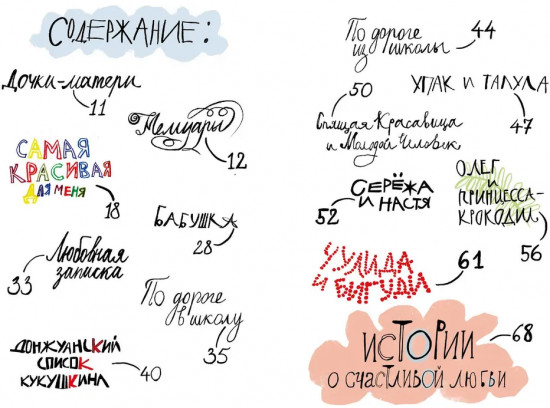 Содержание:
Дочки-матери
11
Мемуары
12
САМАЯ
КРАСИВАЯ
ДЛЯ МЕНЯ
18
БАБУШКА
28
Любовная
записка
33
По дороге
в школу
35
ДОНЖУАНСКИЙ
СПИСОК
КУКУШКИНА
40
По дороге
из школы
44
УПАК И ТАПУЛА
47
50
Спящая Красавица
и Молодой Человек
СЕРЁЖА
И НАСТЯ
52
ОЛЕГ
И
ПРИНЦЕССА-
КРОКОДИЛ
56
ЧУЛИДА
И БИГУДИ
61
ИСТОРИИ
О СЧАСТЛИВОЙ ЛЮБВИ
68